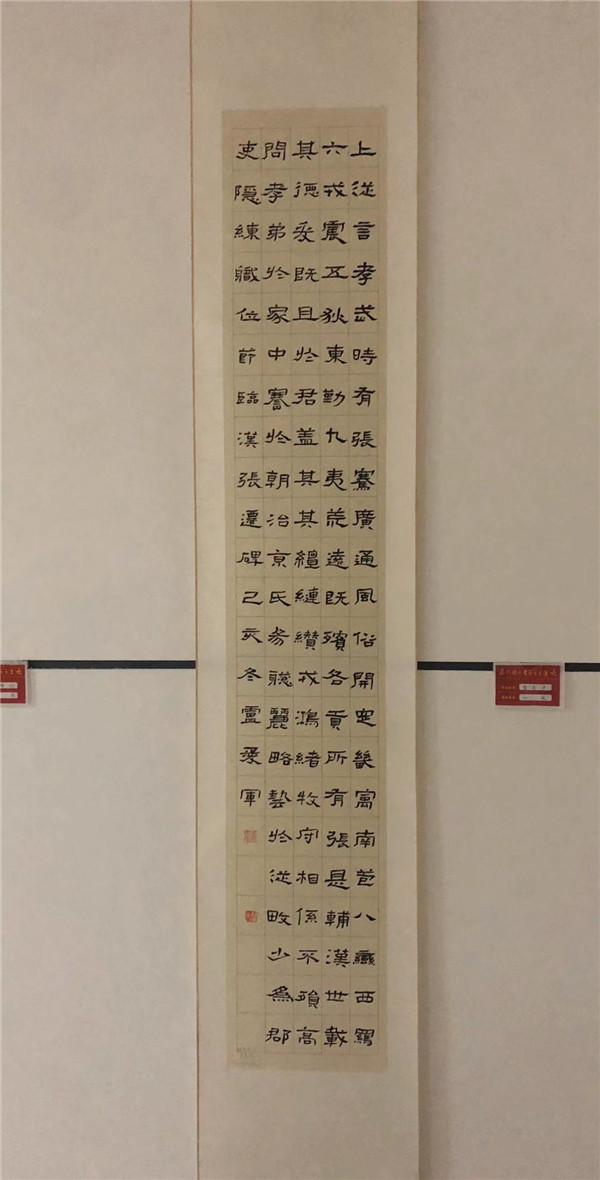 上從言孝武時有張騫廣通風俗開定畿寓南苞八蠻西羈
六戎震五狄東勤九夷荒遠既殯各貢所有張是輔漢世載
其德爰既且於君蓋其其繵縺纘戎鴻緒牧守相係不殞高
問孝弟於家中謇於朝治京氏易聰麗略藝於從畋少為郡
吏隱練職位節臨漢張遷碑己亥冬軍